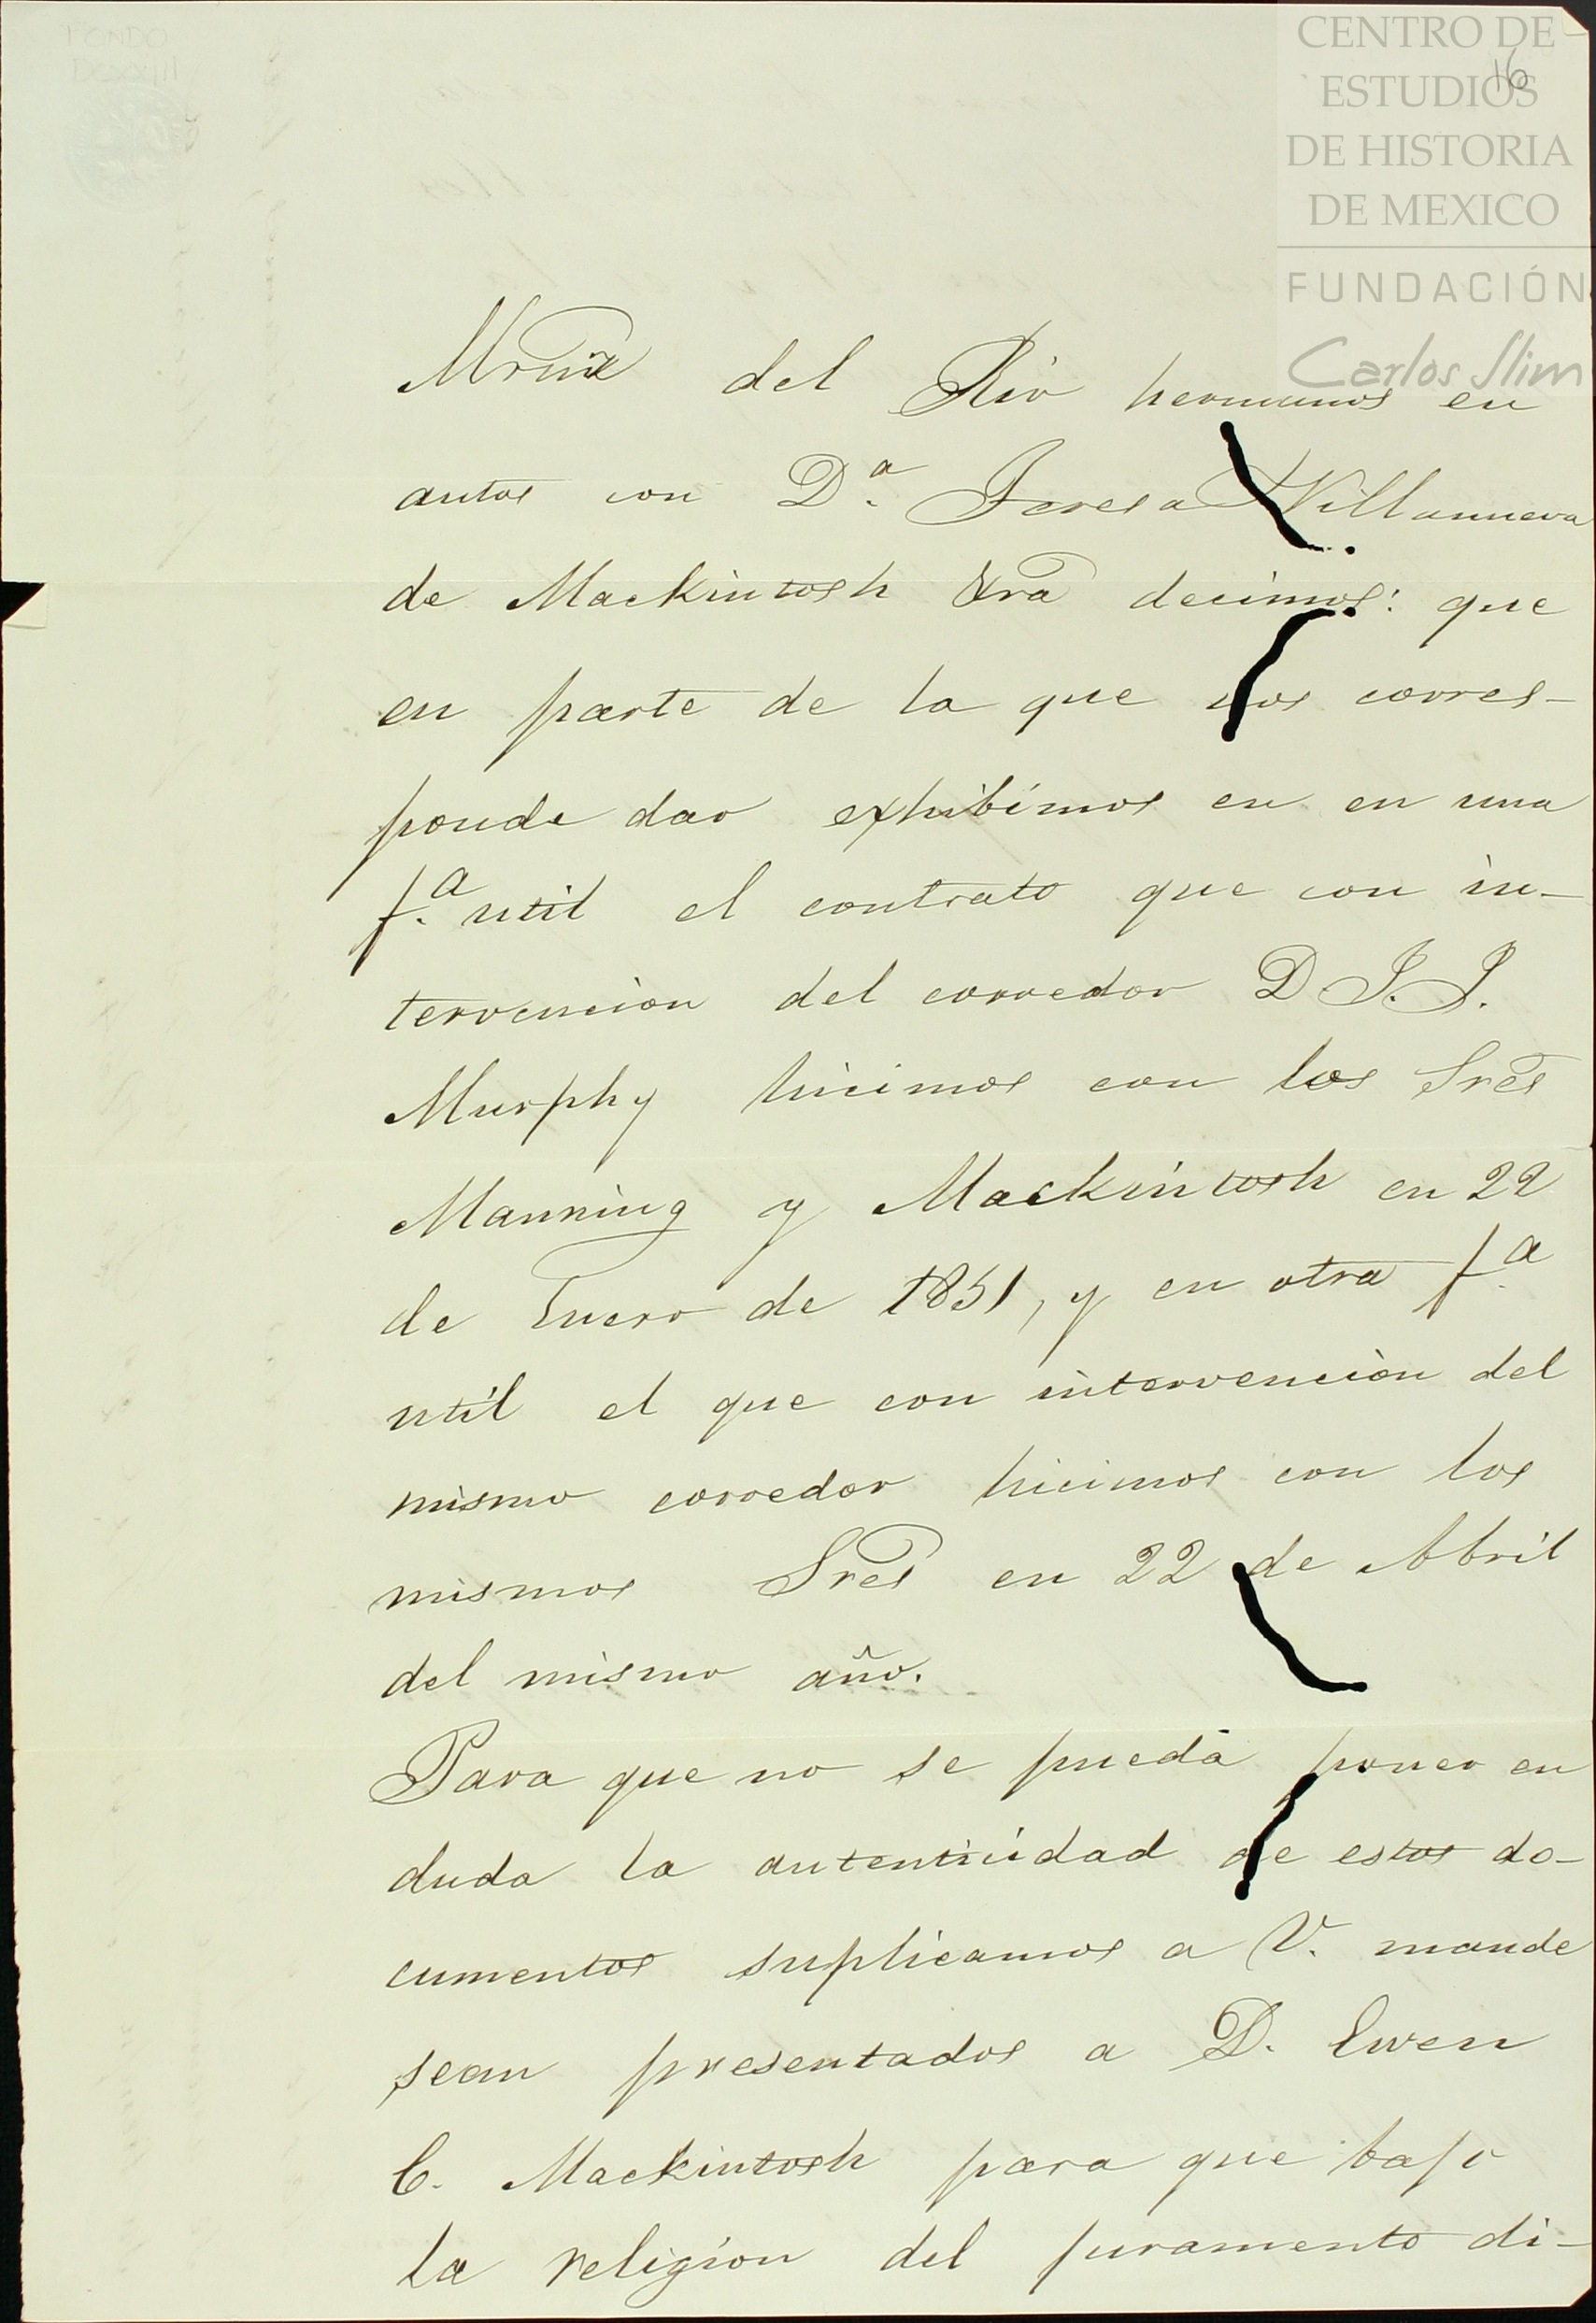 FONDO
DCXXIII
CENTRO DE
ESTUDIOS
DE HISTORIA
DE MEXICO
FUNDACIÓN
Carlos Slim
16
del Rio hermanos en
autos con D.ª Teresa Villanueva
de Mackintosh &ra decimos: que
en parte de la que nos corres-
ponde dar exhibimos en en una
f.ª util el contrato que con in-
tervencion del corredor D J. J.
Murphy hicimos con los Sres
Manning y Mackintosh en 22
de Enero de 1851, y en otra f.ª
util el que con intervencion del
mismo corredor hicimos con los
mismos Sres en 22 de Abril
del mismo año.
Para que no se pueda poner en
duda la autenticidad de estos do-
cumentos suplicamos a V. mande
sean presentados a D. Ewen
C. Mackintosh para que bajo
la religion del juramento di-